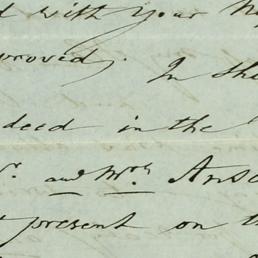 d with your
proved. In the
deed in the
r. and Mrs. Anso
present on th